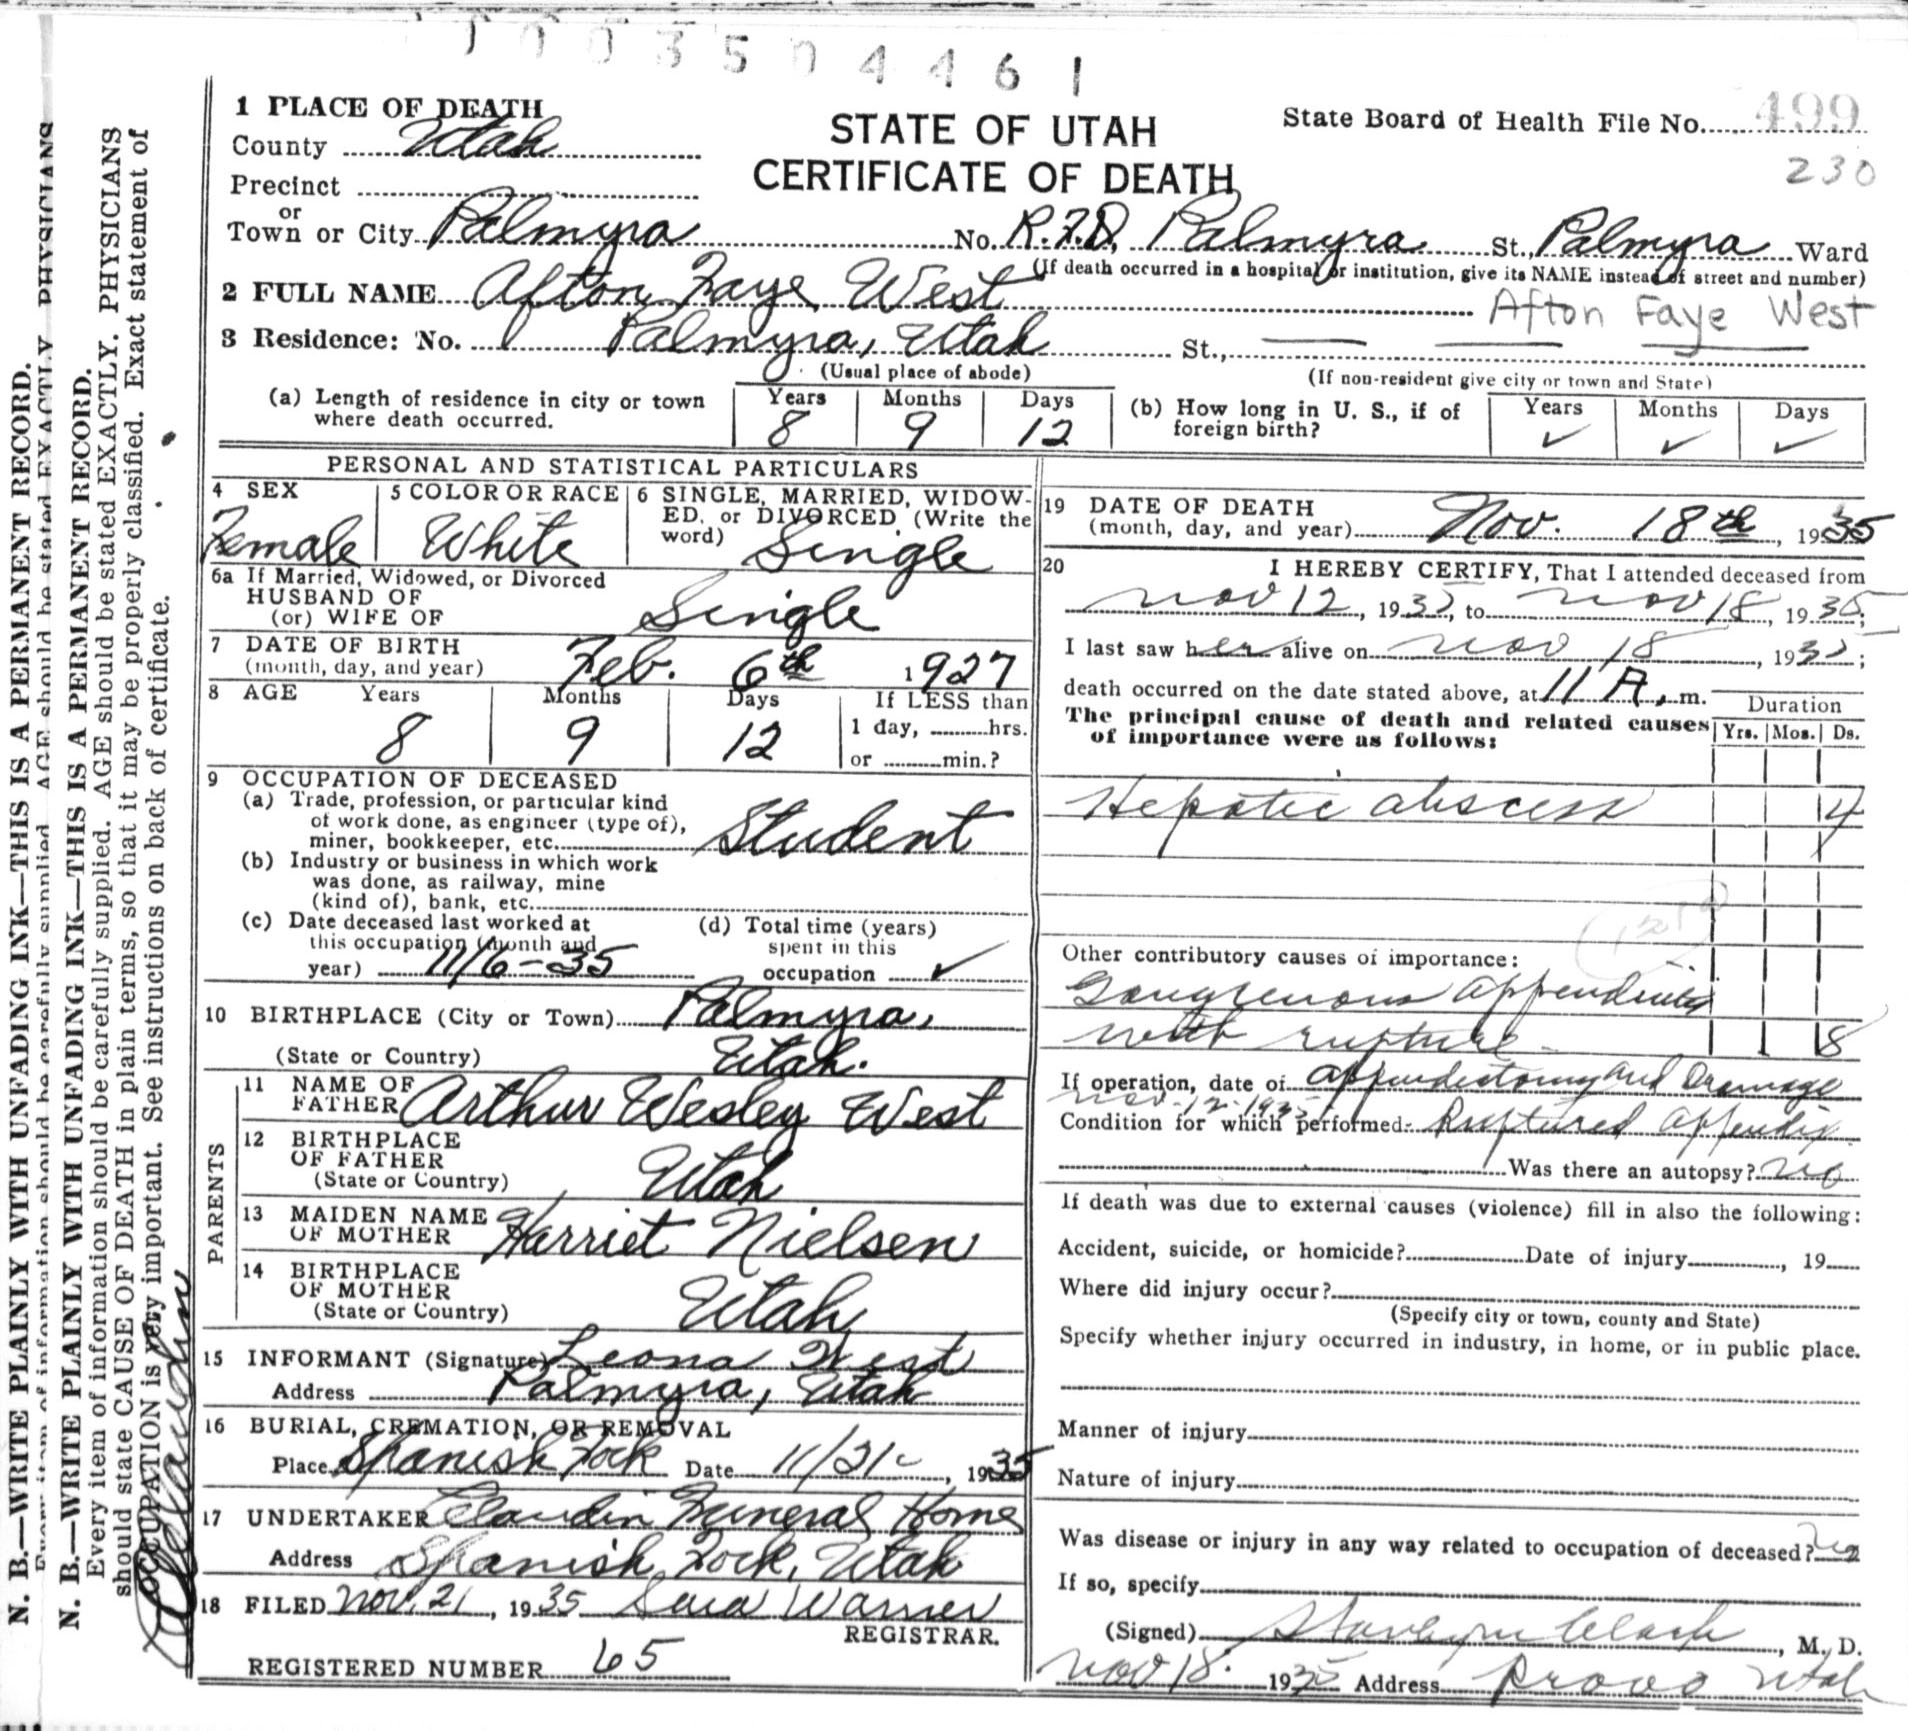 1003504461
1 PLACE OF DEATH
County Utah
STATE OF UTAH
CERTIFICATE OF DEATH
State Board of Health File No. 499
230
Precinct
or
Town or City Palmyra No. R.F.D, Palmyra St., Palmyra Ward
(If death occurred in a hospital or institution, give its NAME instead of street and number)
2 FULL NAME Afton Faye West
Afton Faye West
3 Residence: No. Palmyra, Utah St.,
(Usual place of abode) (If non-resident give city or town and State)
(a) Length of residence in city or town where death occurred. Years 8 Months 9 Days 12
(b) How long in U. S., if of foreign birth? Years ✓ Months ✓ Days ✓
PERSONAL AND STATISTICAL PARTICULARS
4 SEX Female
5 COLOR OR RACE White
6 SINGLE, MARRIED, WIDOWED, or DIVORCED (Write the word) Single
6a If Married, Widowed, or Divorced
HUSBAND OF
(or) WIFE OF Single
7 DATE OF BIRTH
(month, day, and year) Feb. 6th 1927
8 AGE Years 8 Months 9 Days 12 If LESS than
1 day, hrs.
or min.?
9 OCCUPATION OF DECEASED
(a) Trade, profession, or particular kind
of work done, as engineer (type of),
miner, bookkeeper, etc. Student
(b) Industry or business in which work
was done, as railway, mine
(kind of), bank, etc.
(c) Date deceased last worked at
this occupation (month and
year) 11/6-35
(d) Total time (years)
spent in this
occupation ✓
10 BIRTHPLACE (City or Town) Palmyra,
(State or Country) Utah.
PARENTS
11 NAME OF
FATHER Arthur Wesley West
12 BIRTHPLACE
OF FATHER
(State or Country) Utah
13 MAIDEN NAME
OF MOTHER Harriet Nielsen
14 BIRTHPLACE
OF MOTHER
(State or Country) Utah
15 INFORMANT (Signature) Leona West
Address Palmyra, Utah
16 BURIAL, CREMATION, OR REMOVAL
Place Spanish Fork Date 11/21 , 1935
17 UNDERTAKER Claudin Funeral Home
Address Spanish Fork, Utah
18 FILED Nov. 21, 1935 Warner
REGISTRAR.
REGISTERED NUMBER 65
19 DATE OF DEATH
(month, day, and year) Nov. 18th, 1935
20 I HEREBY CERTIFY, That I attended deceased from
Nov 12, 1935, to Nov 18, 1935;
I last saw her alive on Nov 18, 1935;
death occurred on the date stated above, at 11 A. m.
The principal cause of death and related causes
of importance were as follows:
Duration
Yrs. Mos. Ds.
Hepatic abscess 4
Other contributory causes of importance:
Gangrenous appendicitis
with rupture 8
If operation, date of appendectomy and Drainage
Nov-12-1935
Condition for which performed: Ruptured appendix
Was there an autopsy? no
If death was due to external causes (violence) fill in also the following:
Accident, suicide, or homicide? Date of injury , 19
Where did injury occur?
(Specify city or town, county and State)
Specify whether injury occurred in industry, in home, or in public place.
Manner of injury
Nature of injury
Was disease or injury in any way related to occupation of deceased? no
If so, specify
(Signed) Clark, M. D.
Nov 18. 1935 Address Provo Utah
N. B.—WRITE PLAINLY WITH UNFADING INK—THIS IS A PERMANENT RECORD.
N. B.—WRITE PLAINLY WITH UNFADING INK—THIS IS A PERMANENT RECORD.
Every item of information should be carefully supplied. AGE should be stated EXACTLY. PHYSICIANS
should state CAUSE OF DEATH in plain terms, so that it may be properly classified. Exact statement of
OCCUPATION is very important. See instructions on back of certificate.
Claudin